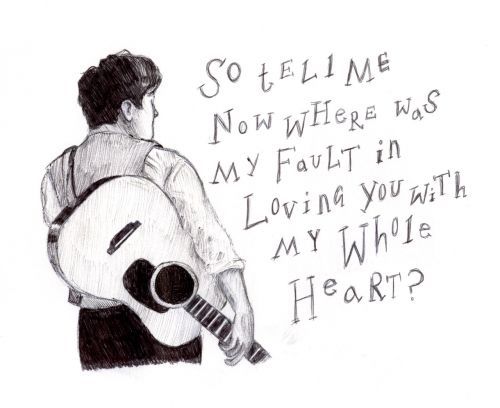 So tELl ME
Now WHeRE was
MY FAULT in
Loving You WiTH
MY WHole
HeART?